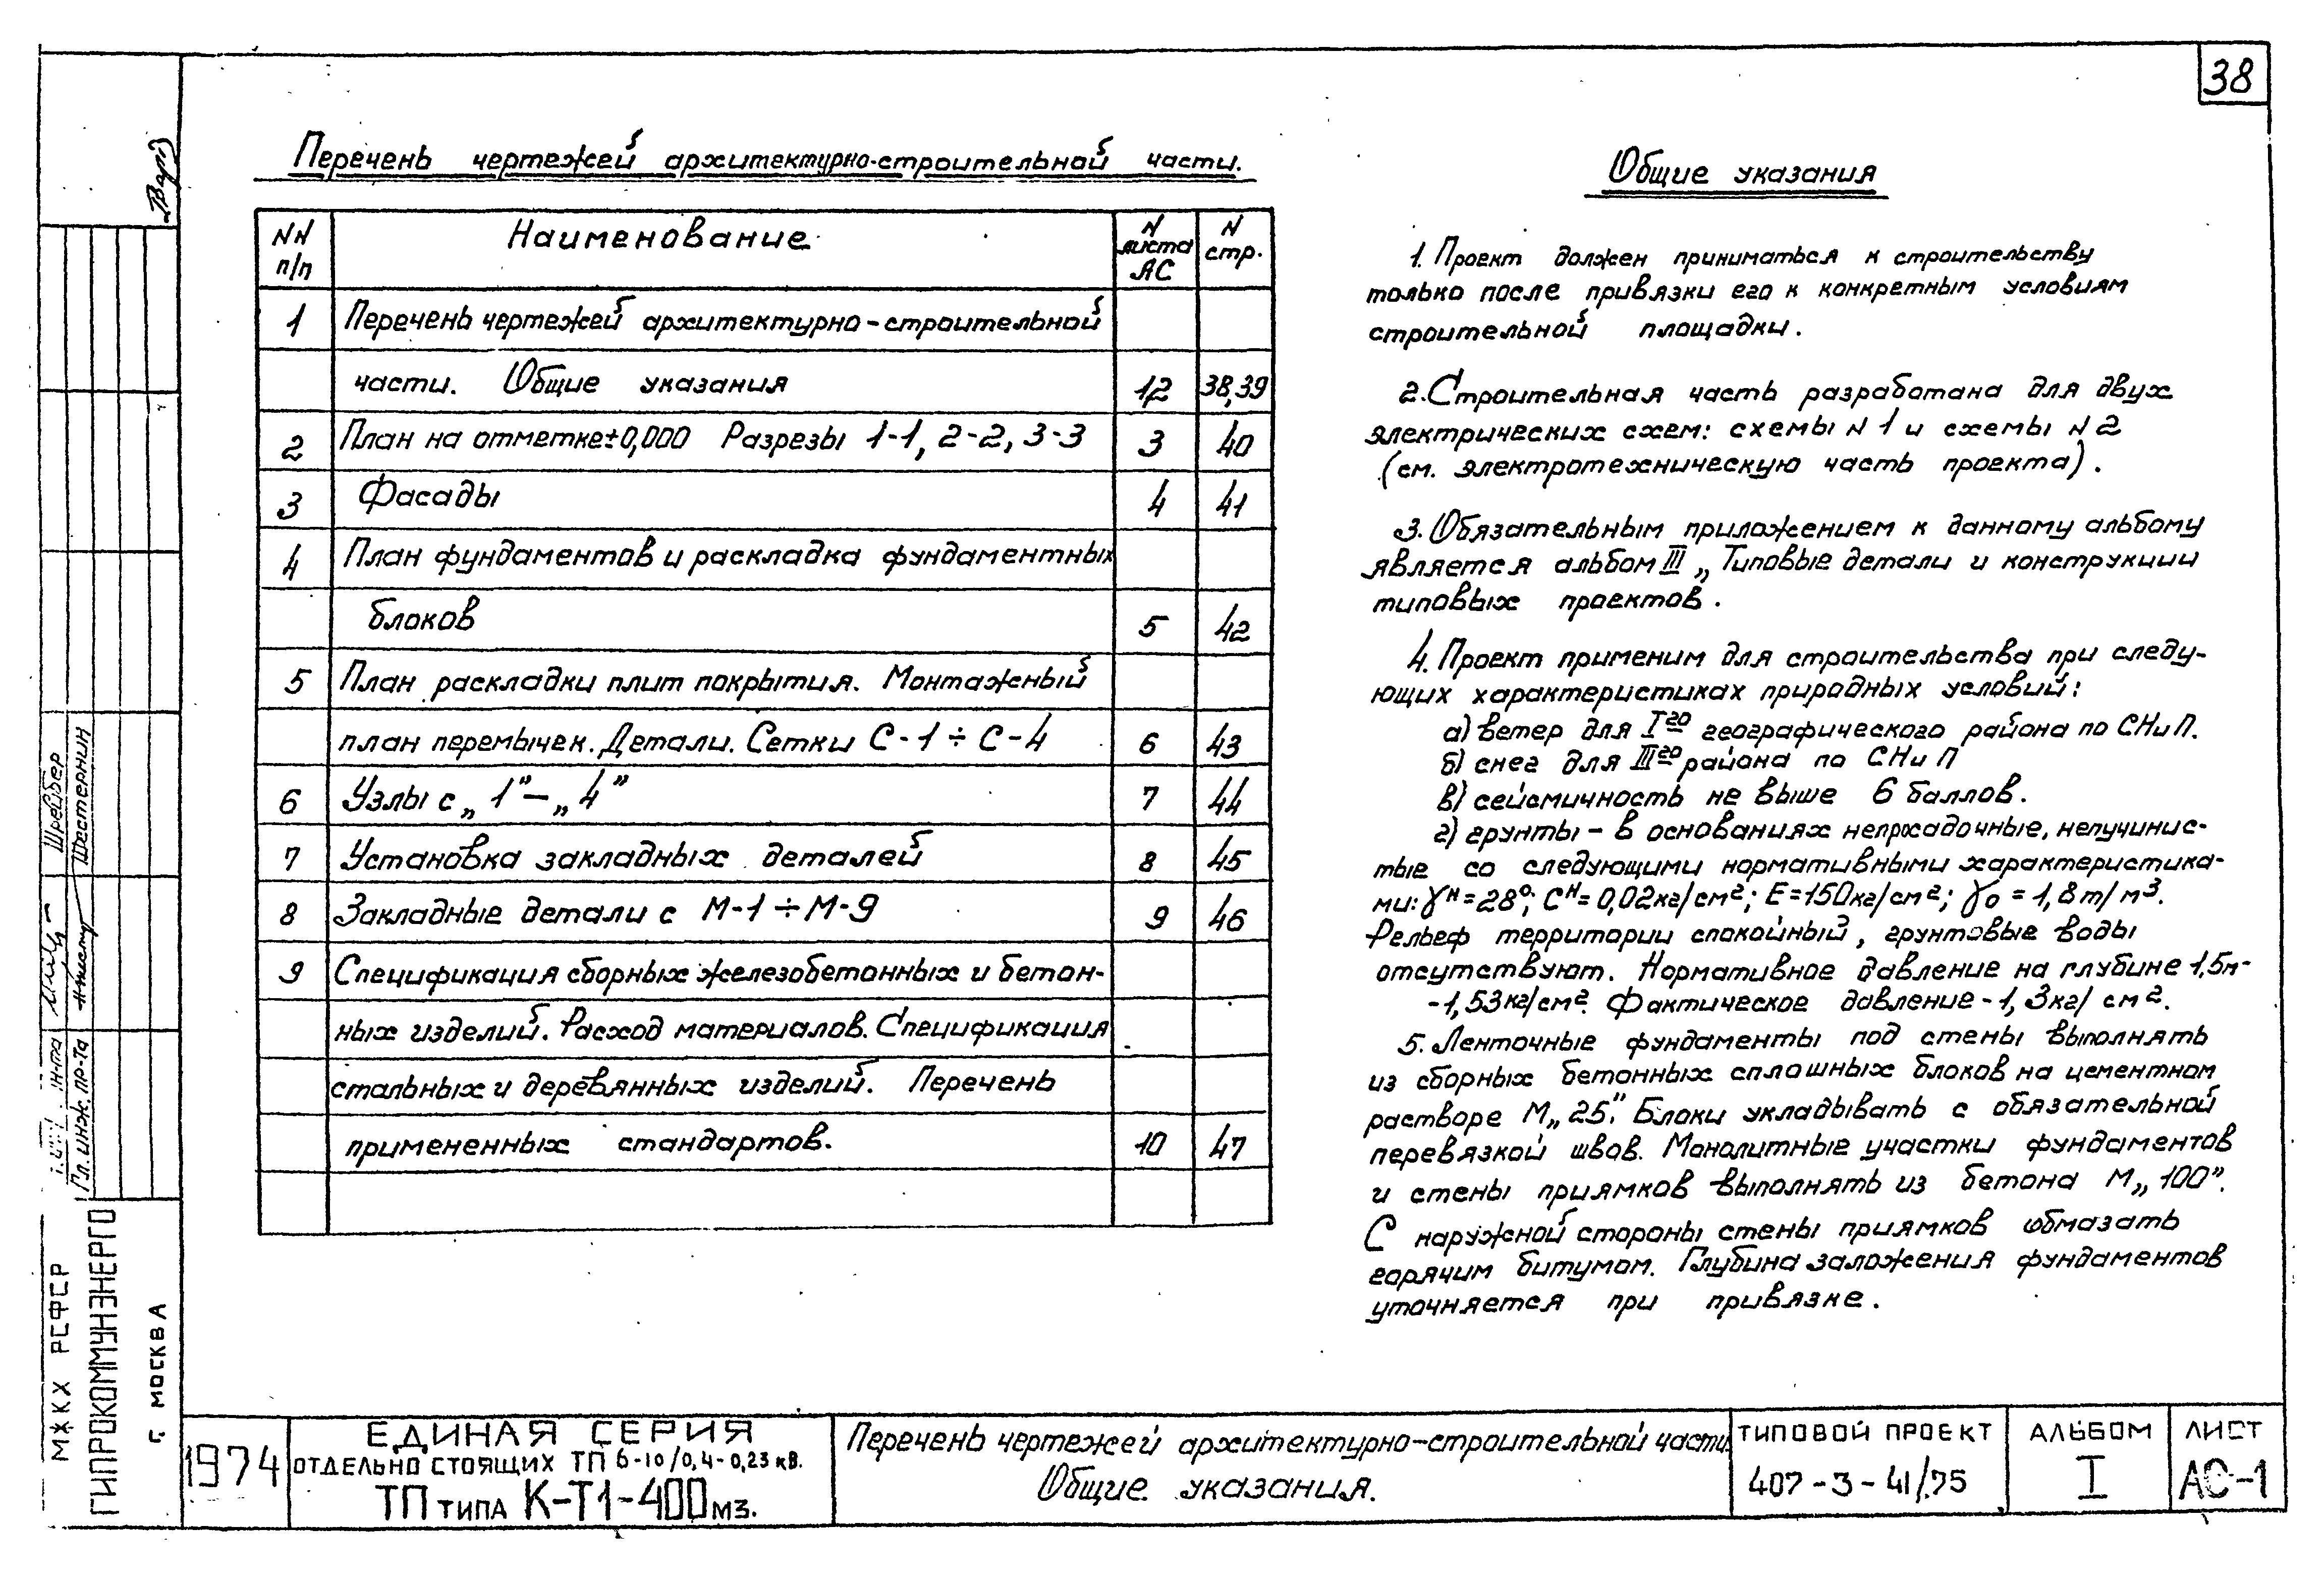 38
Перечень чертежей архитектурно-строительной части.
NN п/п
Наименование
N листа АС
N стр.
1 Перечень чертежей архитектурно-строительной
части. Общие указания 1,2 38,39
2 План на отметке ±0,000 Разрезы 1-1, 2-2, 3-3 3 40
3 Фасады 4 41
4 План фундаментов и раскладка фундаментных
блоков 5 42
5 План раскладки плит покрытия. Монтажный
план перемычек. Детали. Сетки С-1 ÷ С-4 6 43
6 Узлы с „1" — „4" 7 44
7 Установка закладных деталей 8 45
8 Закладные детали с М-1 ÷ М-9 9 46
9 Спецификация сборных железобетонных и бетон-
ных изделий. Расход материалов. Спецификация
стальных и деревянных изделий. Перечень
примененных стандартов. 10 47
Общие указания
1. Проект должен приниматься к строительству
только после привязки его к конкретным условиям
строительной площадки.
2. Строительная часть разработана для двух
электрических схем: схемы N 1 и схемы N 2
(см. электротехническую часть проекта).
3. Обязательным приложением к данному альбому
является альбом III „Типовые детали и конструкции
типовых проектов.
4. Проект применим для строительства при следу-
ющих характеристиках природных условий:
а) ветер для Iго географического района по СНиП.
б) снег для IIIго района по СНиП
в) сейсмичность не выше 6 баллов.
г) грунты - в основаниях непросадочные, непучинис-
тые со следующими нормативными характеристика-
ми: γн = 28°; Cн = 0,02кг/см²; Е = 150кг/см²; γо = 1,8т/м³.
Рельеф территории спокойный, грунтовые воды
отсутствуют. Нормативное давление на глубине 1,5м-
-1,53кг/см². Фактическое давление - 1,3кг/см².
5. Ленточные фундаменты под стены выполнять
из сборных бетонных сплошных блоков на цементном
растворе М„25". Блоки укладывать с обязательной
перевязкой швов. Монолитные участки фундаментов
и стены приямков выполнять из бетона М„100".
С наружной стороны стены приямков обмазать
горячим битумом. Глубина заложения фундаментов
уточняется при привязке.
Шрейбер
Шестернин
Гл. инж. пр-та
МЖКХ РСФСР
ГИПРОКОММУНЭНЕРГО
г. МОСКВА
1974
ЕДИНАЯ СЕРИЯ
ОТДЕЛЬНО СТОЯЩИХ ТП 6-10/0,4-0,23 кв.
ТП ТИПА К-Т1-400 мз.
Перечень чертежей архитектурно-строительной части.
Общие указания.
ТИПОВОЙ ПРОЕКТ
407-3-41/75
АЛЬБОМ
I
ЛИСТ
АС-1